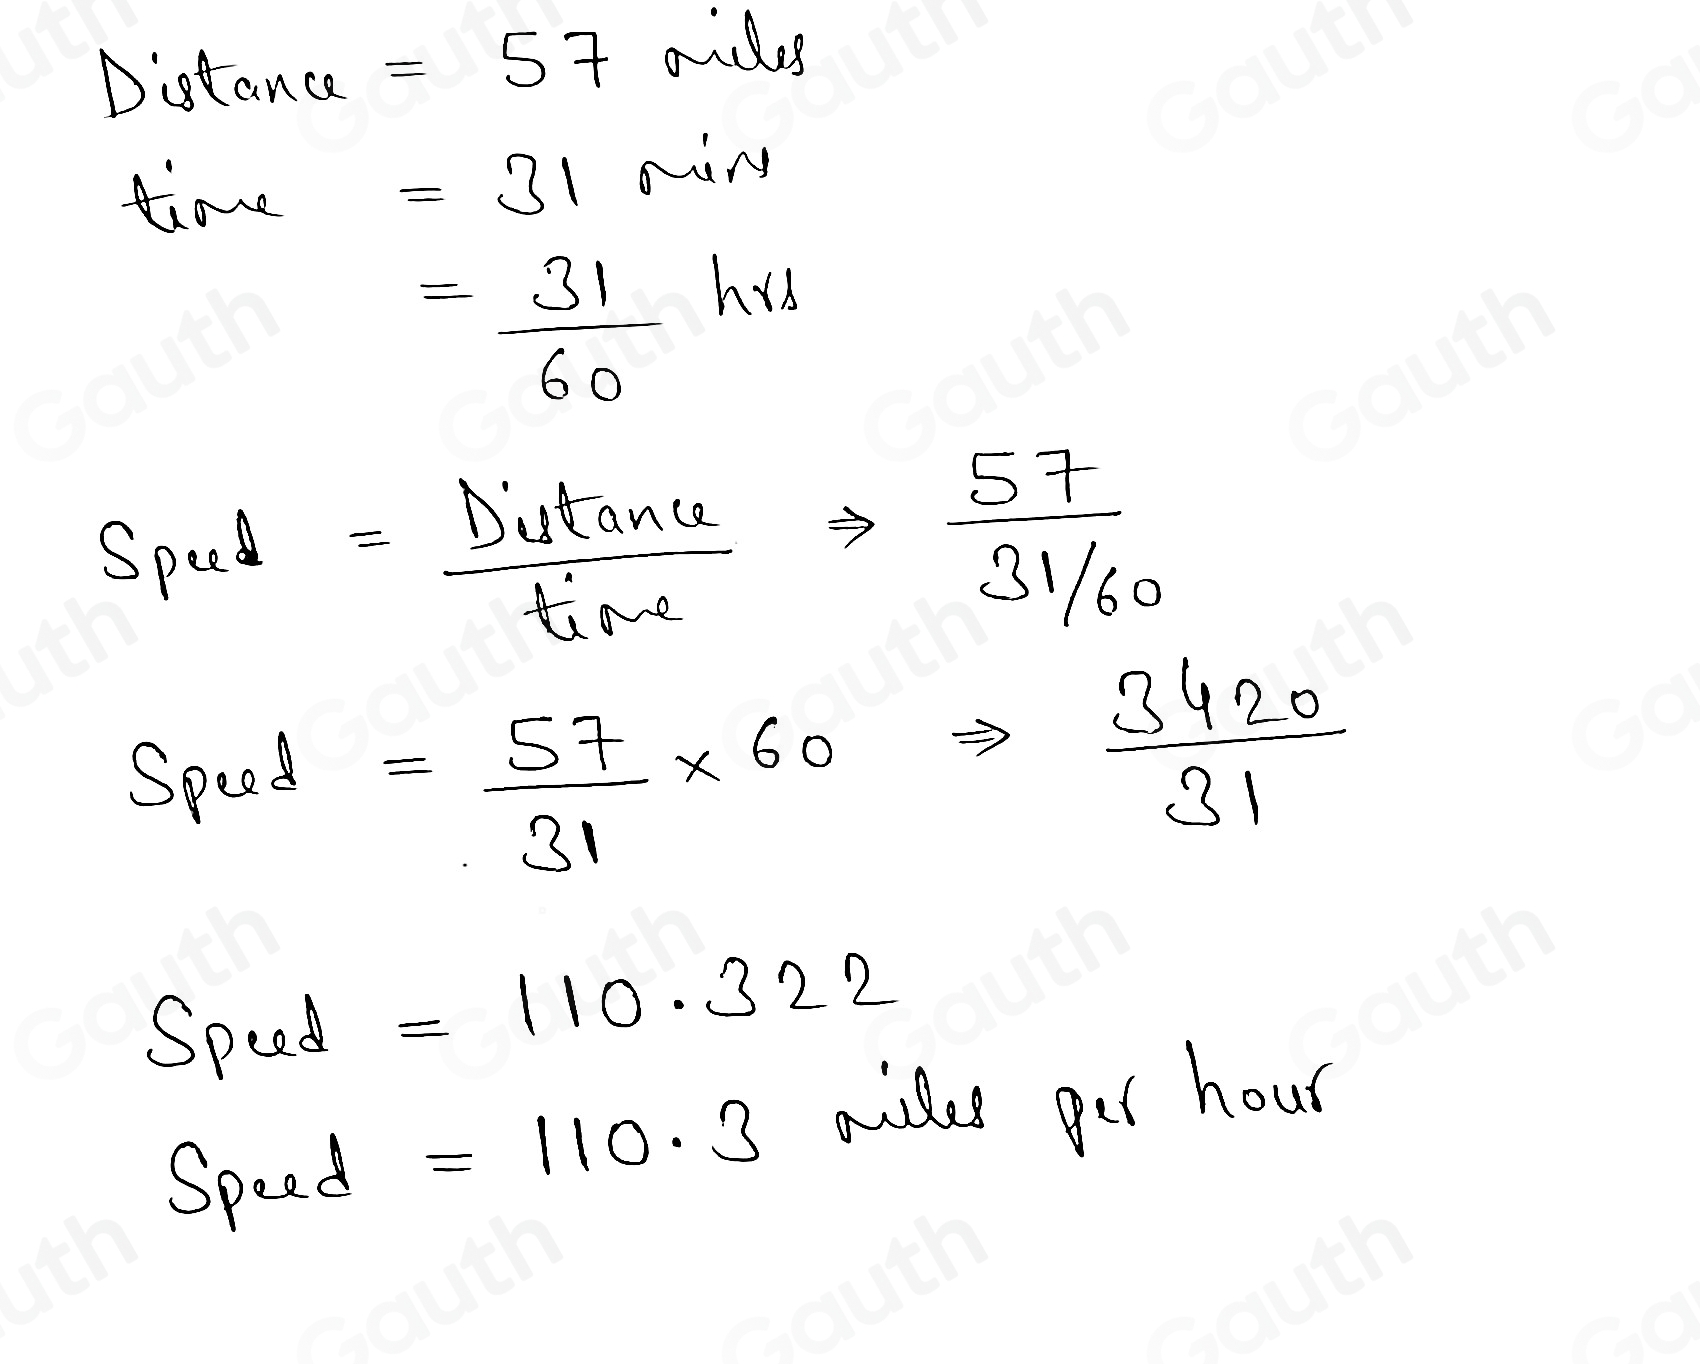 Distance = 57 miles
time = 31 mins
= 31/60 hrs
Speed = Distance/time ⇒ 57/(31/60)
Speed = 57/31 × 60 ⇒ 3420/31
Speed = 110.322
Speed = 110.3 miles per hour
Gauth